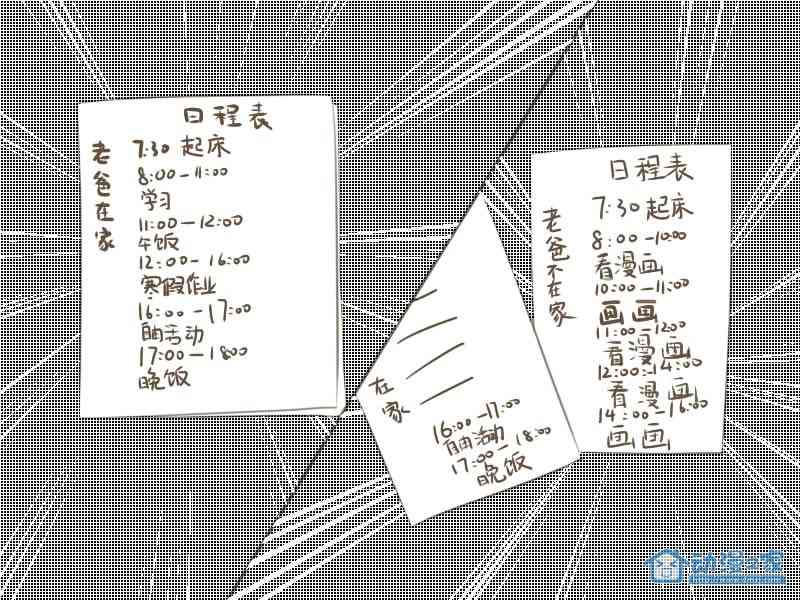 日程表
老爸在家
7:30 起床
8:00-11:00
学习
11:00-12:00
午饭
12:00-16:00
寒假作业
16:00-17:00
自由活动
17:00-1800
晚饭
在家
16:00-17:00
自由活动
17:00-18:00
晚饭
日程表
老爸不在家
7:30 起床
8:00-10:00
看漫画
10:00-11:00
画画
11:00-1200
看漫画
12:00-14:00
看漫画
14:00-16:00
画画
动漫之家